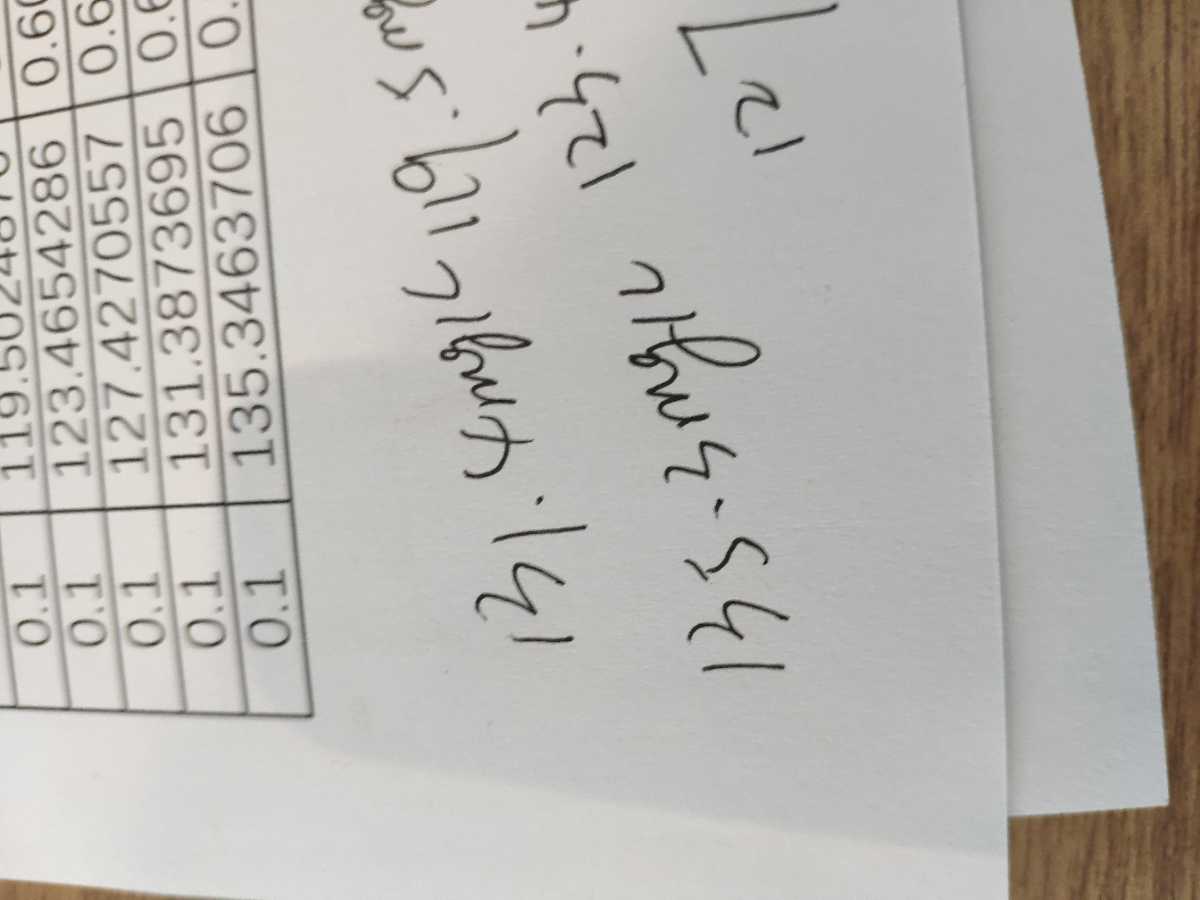 0.1 123.4654286 0.60
0.1 127.4270557 0.6
0.1 131.3873695 0.6
0.1 135.3463706 0.
131.4mg/L 119.5mg
135.3mg/L 123.4
127